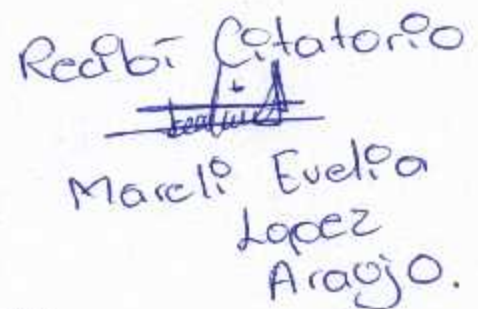 Recibí Citatorio
Mareli Evelia
Lopez
Araujo.